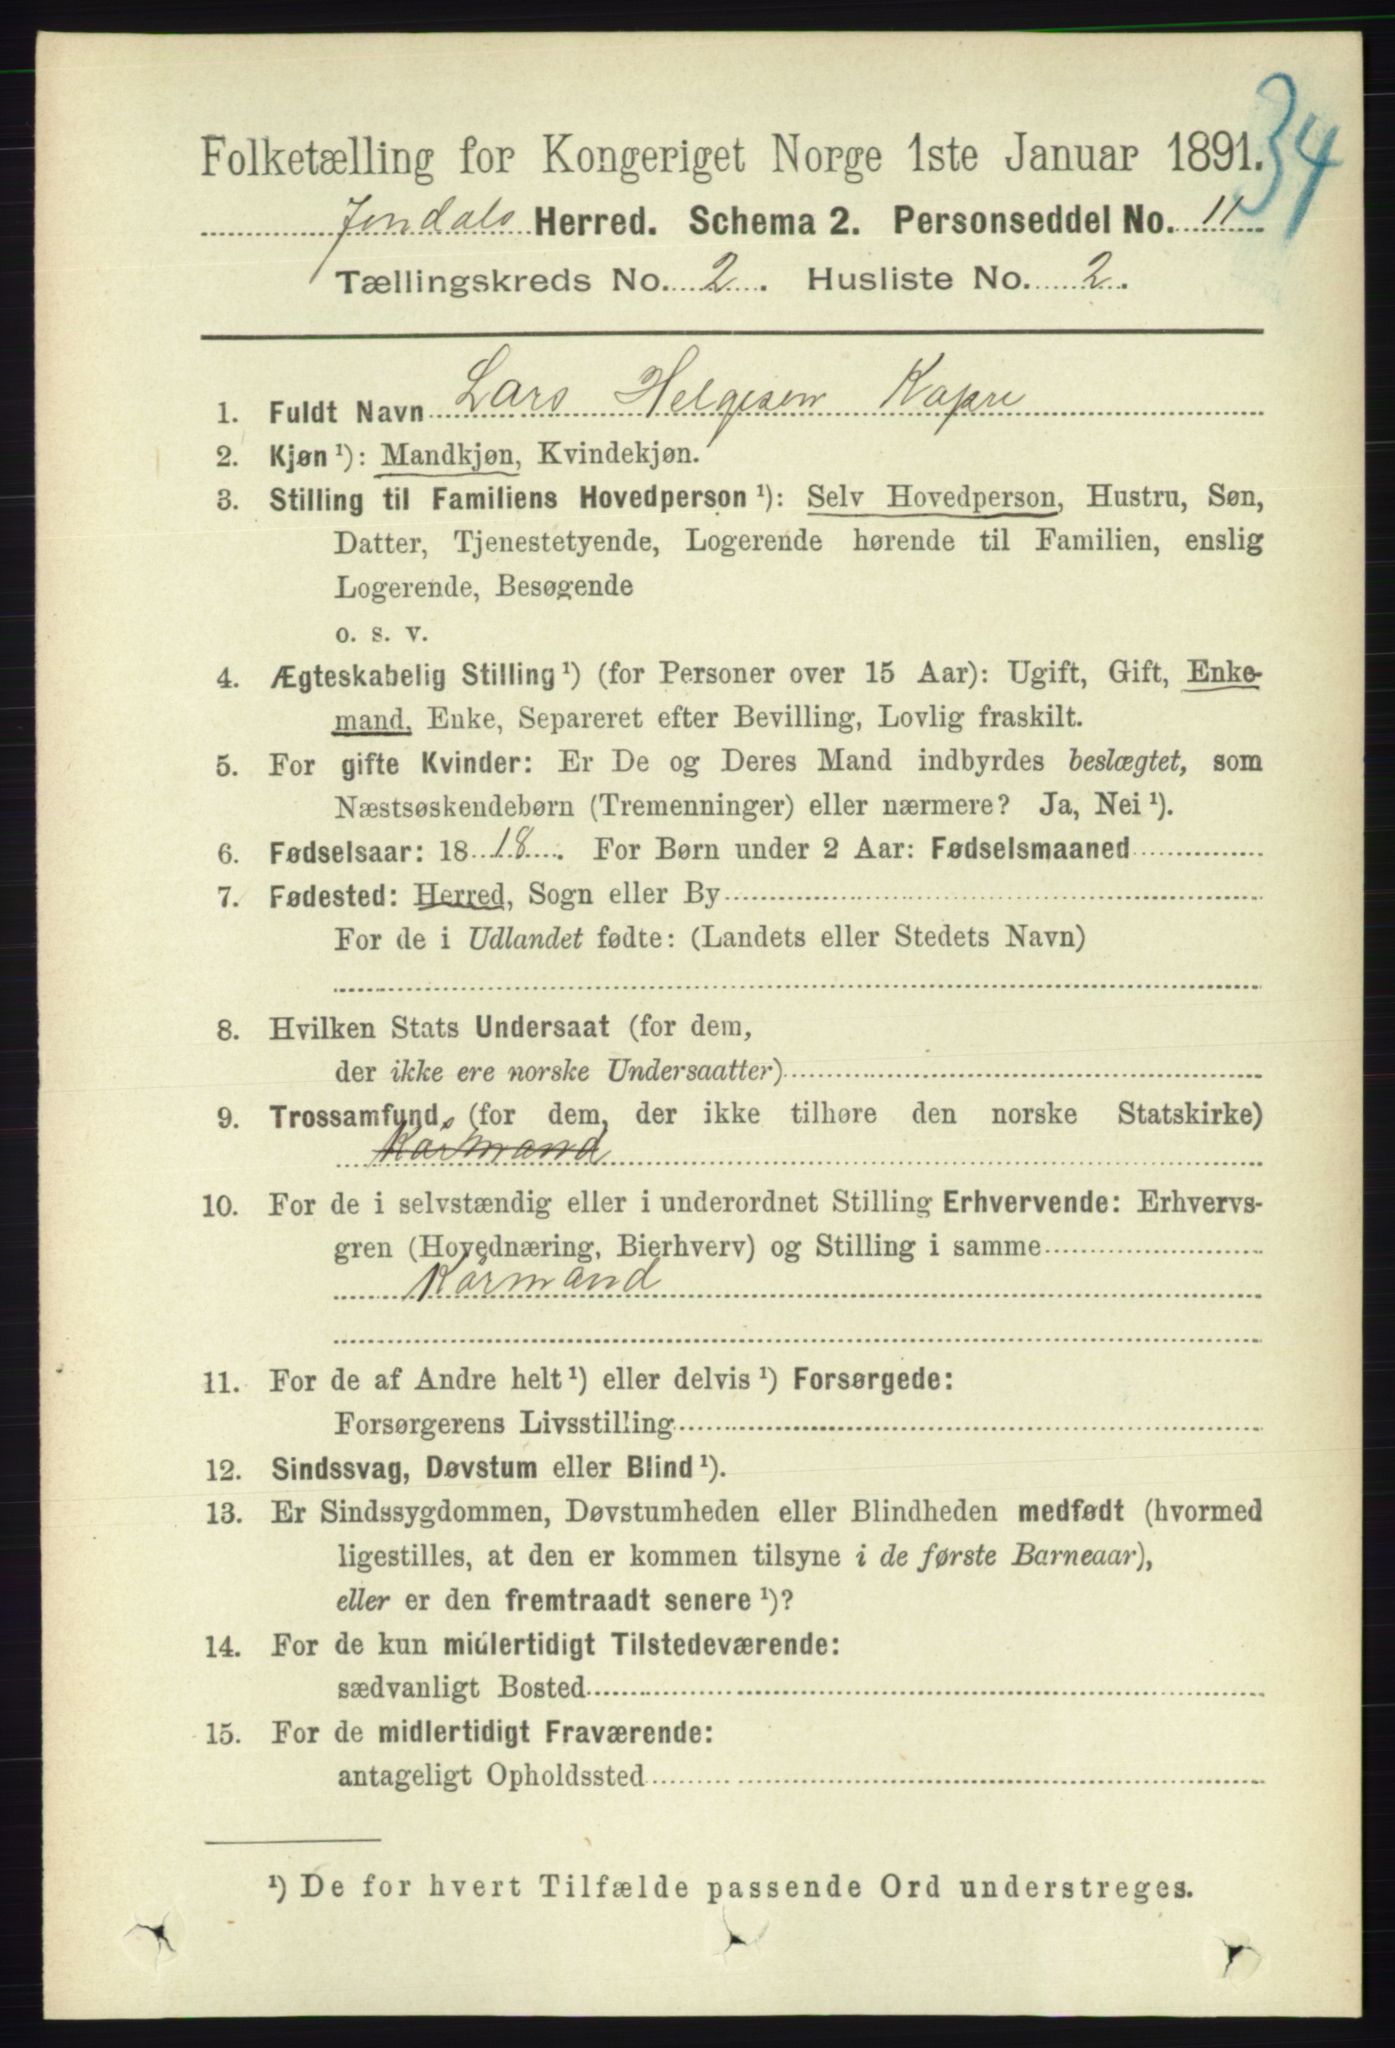 34
Folketælling for Kongeriget Norge 1ste Januar 1891.
Jondals Herred. Schema 2. Personseddel No. 11
Tællingskreds No. 2. Husliste No. 2.
1. Fuldt Navn Lars Helgesen Kapre
2. Kjøn ¹): Mandkjøn, Kvindekjøn.
3. Stilling til Familiens Hovedperson ¹): Selv Hovedperson, Hustru, Søn,
Datter, Tjenestetyende, Logerende hørende til Familien, enslig
Logerende, Besøgende
o. s. v.
4. Ægteskabelig Stilling ¹) (for Personer over 15 Aar): Ugift, Gift, Enke-
mand, Enke, Separeret efter Bevilling, Lovlig fraskilt.
5. For gifte Kvinder: Er De og Deres Mand indbyrdes beslægtet, som
Næstsøskendebørn (Tremenninger) eller nærmere? Ja, Nei ¹).
6. Fødselsaar: 1818. For Børn under 2 Aar: Fødselsmaaned
7. Fødested: Herred, Sogn eller By
For de i Udlandet fødte: (Landets eller Stedets Navn)
8. Hvilken Stats Undersaat (for dem,
der ikke ere norske Undersaatter)
9. Trossamfund (for dem, der ikke tilhøre den norske Statskirke)
Kårmand
10. For de i selvstændig eller i underordnet Stilling Erhvervende: Erhvervs-
gren (Hovednæring, Bierhverv) og Stilling i samme
Kårmand
11. For de af Andre helt ¹) eller delvis ¹) Forsørgede:
Forsørgerens Livsstilling
12. Sindssvag, Døvstum eller Blind ¹).
13. Er Sindssygdommen, Døvstumheden eller Blindheden medfødt (hvormed
ligestilles, at den er kommen tilsyne i de første Barneaar),
eller er den fremtraadt senere ¹)?
14. For de kun midlertidigt Tilstedeværende:
sædvanligt Bosted
15. For de midlertidigt Fraværende:
antageligt Opholdssted
¹) De for hvert Tilfælde passende Ord understreges.